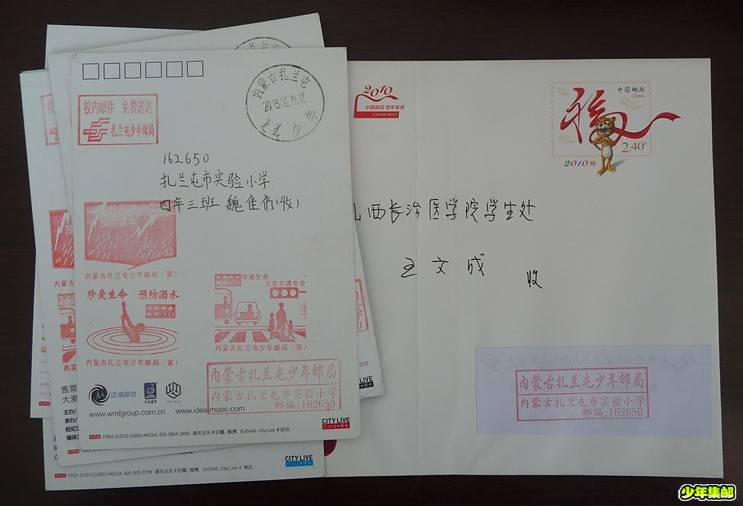 内蒙古扎兰屯
校内邮件 免费送达
扎兰屯少年邮局
162650
扎兰屯市实验小学
四年三班 魏佳俏(收)
内蒙古扎兰屯少年邮局(宣)
珍爱生命 预防溺水
内蒙古扎兰屯少年邮局(宣)
珍爱生命
注意交通安全
内蒙古扎兰屯少年邮局(宣)
内蒙古扎兰屯少年邮局
内蒙古扎兰屯市实验小学
邮编:162650
www.wmfgroup.com.cn
www.ideajmusic.com
CITYLIVE
售票
大麦
主办
承办
CITYLIVE
2010
中国邮政 贺年有奖
CHINA POST
中国邮政
CHINA
福
2.40元
2010
山西长治医学院学生处
王文成 收
内蒙古扎兰屯少年邮局
内蒙古扎兰屯市实验小学
邮编:162650
少年集邮